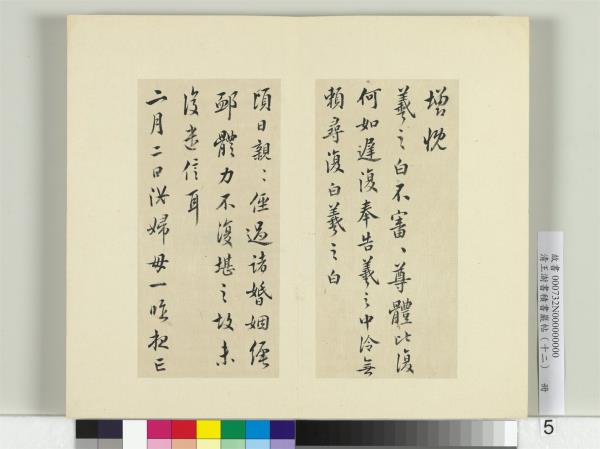 增忱
羲之白不審、尊體比復
何如遲復奉告羲之中冷無
賴尋復白羲之白
頃日親〻經過諸婚姻經
鄙體力不復堪之故未
復遣信耳
二月二日洪婦母一昨夜亡
故書000732N000000000
清王澍書積書巖帖（十二） 冊
5